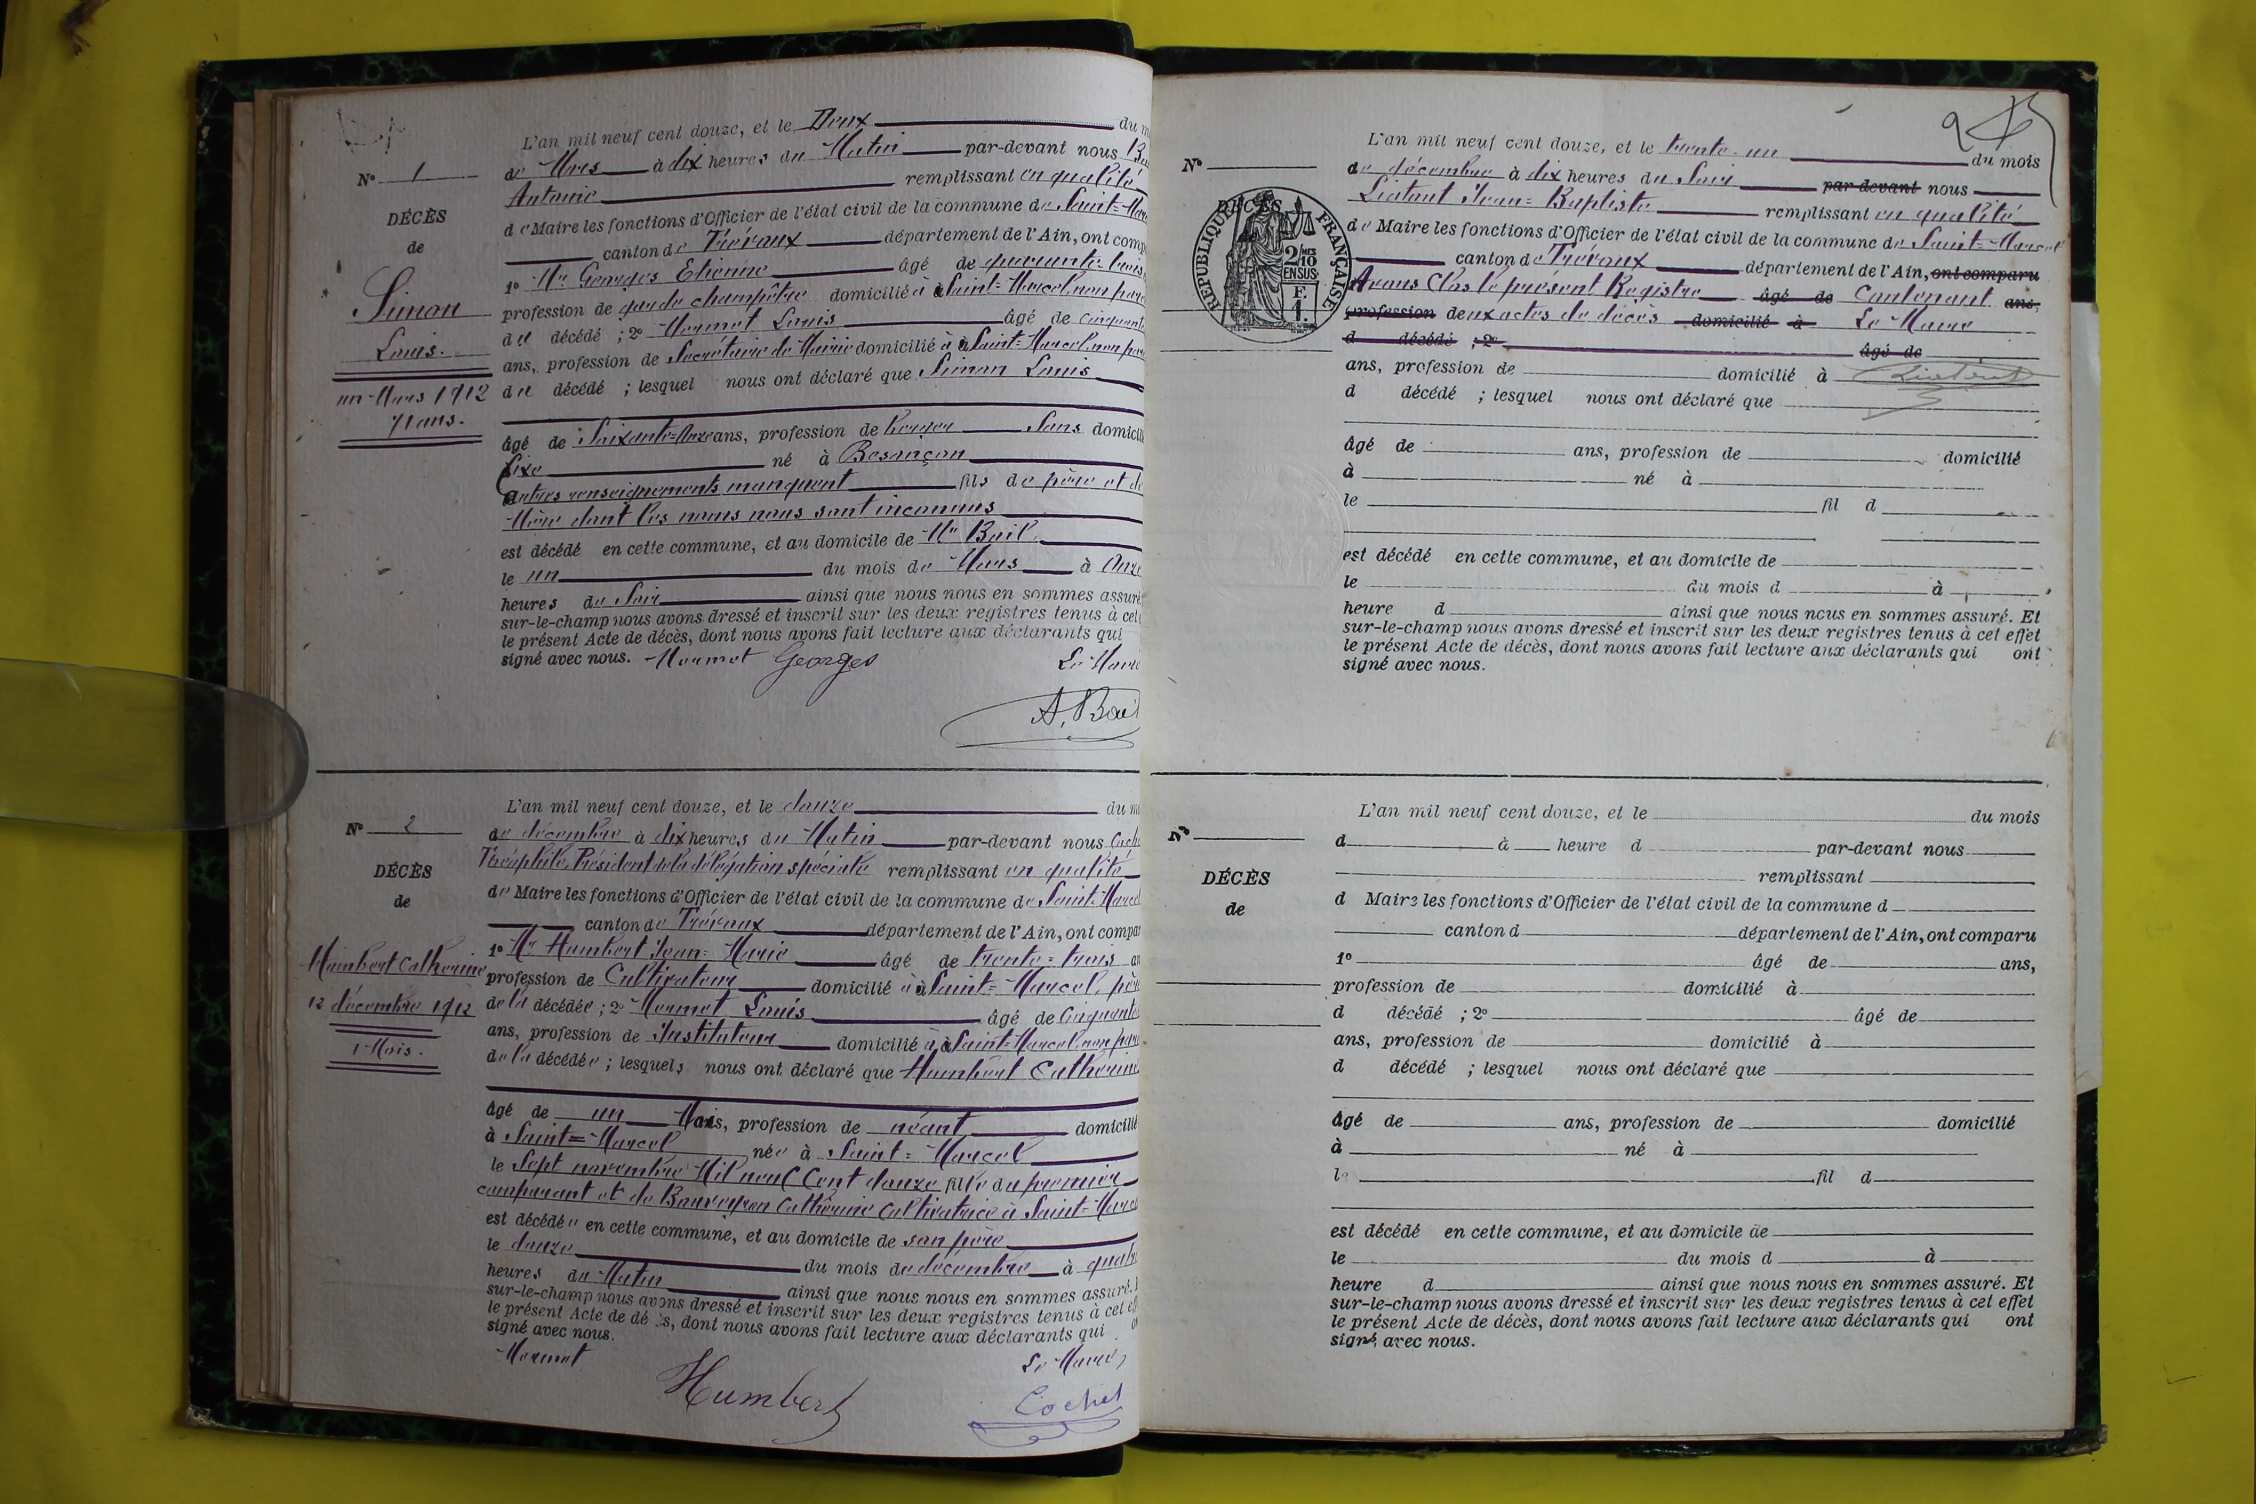 N° 1
DÉCÈS
de
Simon
Louis.
un Mars 1912
71 ans.
L'an mil neuf cent douze, et le Deux du m
de Mars à dix heures du Matin par-devant nous
Antoine remplissant en qualité
de Maire les fonctions d'Officier de l'état civil de la commune de Saint-Marc
canton de Trévoux département de l'Ain, ont comp
1° Mr Georges Etienne âgé de quarante-trois
profession de garde champêtre domicilié à à Saint-Marcel, non pare
du décédé ; 2° Mermet Louis âgé de cinquante
ans, profession de Secrétaire de Mairie domicilié à à Saint-Marcel, non par
du décédé ; lesquel nous ont déclaré que Simon Louis
âgé de Soixante-Onze ans, profession de berger Sans domicili
fixe né à Besançon
autres renseignements manquent fils de père et de
Mère dont les noms nous sont inconnus
est décédé en cette commune, et au domicile de Mr Bail
le un du mois de Mars à Onze
heures du Soir ainsi que nous nous en sommes assuré.
sur-le-champ nous avons dressé et inscrit sur les deux registres tenus à cet
le présent Acte de décès, dont nous avons fait lecture aux déclarants qui
signé avec nous. Mermet Georges Le Maire
A. Bail
N° 2
DÉCÈS
de
Humbert Catherine
12 décembre 1912
1 Mois.
L'an mil neuf cent douze, et le douze du m
de décembre à dix heures du Matin par-devant nous Coche
Théophile, Président de la délégation spéciale remplissant en qualité
de Maire les fonctions d'Officier de l'état civil de la commune de Saint-Marcel
canton de Trévoux département de l'Ain, ont compar
1° Mr Humbert Jean-Marie âgé de trente-trois an
profession de Cultivateur domicilié à à Saint-Marcel, père
de la décédée ; 2° Mermet Louis âgé de Cinquante
ans, profession de Instituteur domicilié à à Saint-Marcel, non pare
de la décédée ; lesquels nous ont déclaré que Humbert Catherine
âgé de un Mois, profession de néant domicilié
à Saint-Marcel née à Saint-Marcel
le Sept novembre Mil neuf Cent douze fille du premier
comparant et de Bouveyron Catherine Cultivatrice à Saint-Marce
est décédée en cette commune, et au domicile de son père
le douze du mois de décembre à quatr
heures du Matin ainsi que nous nous en sommes assuré.
sur-le-champ nous avons dressé et inscrit sur les deux registres tenus à cet eff
le présent Acte de décès, dont nous avons fait lecture aux déclarants qui o
signé avec nous.
Mermet Humbert Le Maire,
Cochet
N°
DÉCÈS
RÉPUBLIQUE FRANÇAISE
2/10 EN SUS
F.
1.
L'an mil neuf cent douze, et le trente-un du mois
de décembre à dix heures du Soir par-devant nous
Liotout Jean-Baptiste remplissant en qualité
de Maire les fonctions d'Officier de l'état civil de la commune de Saint-Marcel
canton de Trévoux département de l'Ain, ont comparu
Avons Clos le présent Registre âgé de Contenant ans,
profession deux actes de décès domicilié à Le Maire
d décédé ; 2° âgé de
ans, profession de domicilié à
d décédé ; lesquel nous ont déclaré que
âgé de ans, profession de domicilié
à né à
le fil d
est décédé en cette commune, et au domicile de
le du mois d à
heure d ainsi que nous nous en sommes assuré. Et
sur-le-champ nous avons dressé et inscrit sur les deux registres tenus à cet effet
le présent Acte de décès, dont nous avons fait lecture aux déclarants qui ont
signé avec nous.
N°
DÉCÈS
de
L'an mil neuf cent douze, et le du mois
d à heure d par-devant nous
remplissant
d Maire les fonctions d'Officier de l'état civil de la commune d
canton d département de l'Ain, ont comparu
1° âgé de ans,
profession de domicilié à
d décédé ; 2° âgé de
ans, profession de domicilié à
d décédé ; lesquel nous ont déclaré que
âgé de ans, profession de domicilié
à né à
le fil d
est décédé en cette commune, et au domicile de
le du mois d à
heure d ainsi que nous nous en sommes assuré. Et
sur-le-champ nous avons dressé et inscrit sur les deux registres tenus à cet effet
le présent Acte de décès, dont nous avons fait lecture aux déclarants qui ont
signé avec nous.